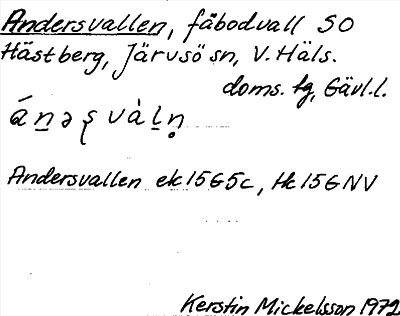 Andersvallen, fäbodvall SO
Hästberg, Järvsö sn, V. Häls.
doms. tg, Gävl.l.
Andersvallen ek 15G5c, Hk 15G NV
Kerstin Mickelsson 1972